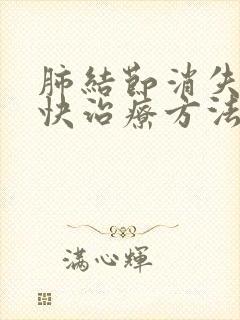 肺結節消失
快治療方法
滿心輝